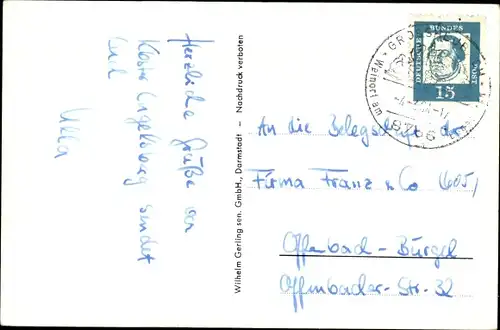 Herzliche Grüße von
Kloster Engelsberg sendet
Euch
Ulla
Wilhelm Gerling sen. GmbH., Darmstadt — Nachdruck verboten
DEUTSCHE BUNDES POST
15
Weinort am
8766
An die Belegschaft der
Firma Franz & Co (605)
Offenbach-Bürgel
Offenbacher-Str. 32